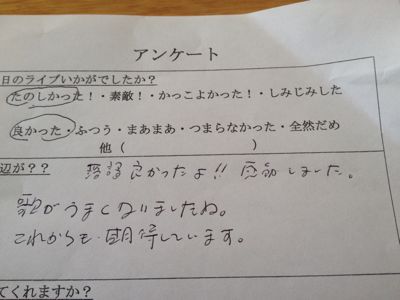 アンケート
日のライブいかがでしたか？
たのしかった！・素敵！・かっこよかった！・しみじみした
良かった・ふつう・まあまあ・つまらなかった・全然だめ
他（　　　　　　　　　　）
辺が？？
落語良かったよ!! 感動しました。
歌がうまくなりましたね。
これからも期待しています。
てくれますか？